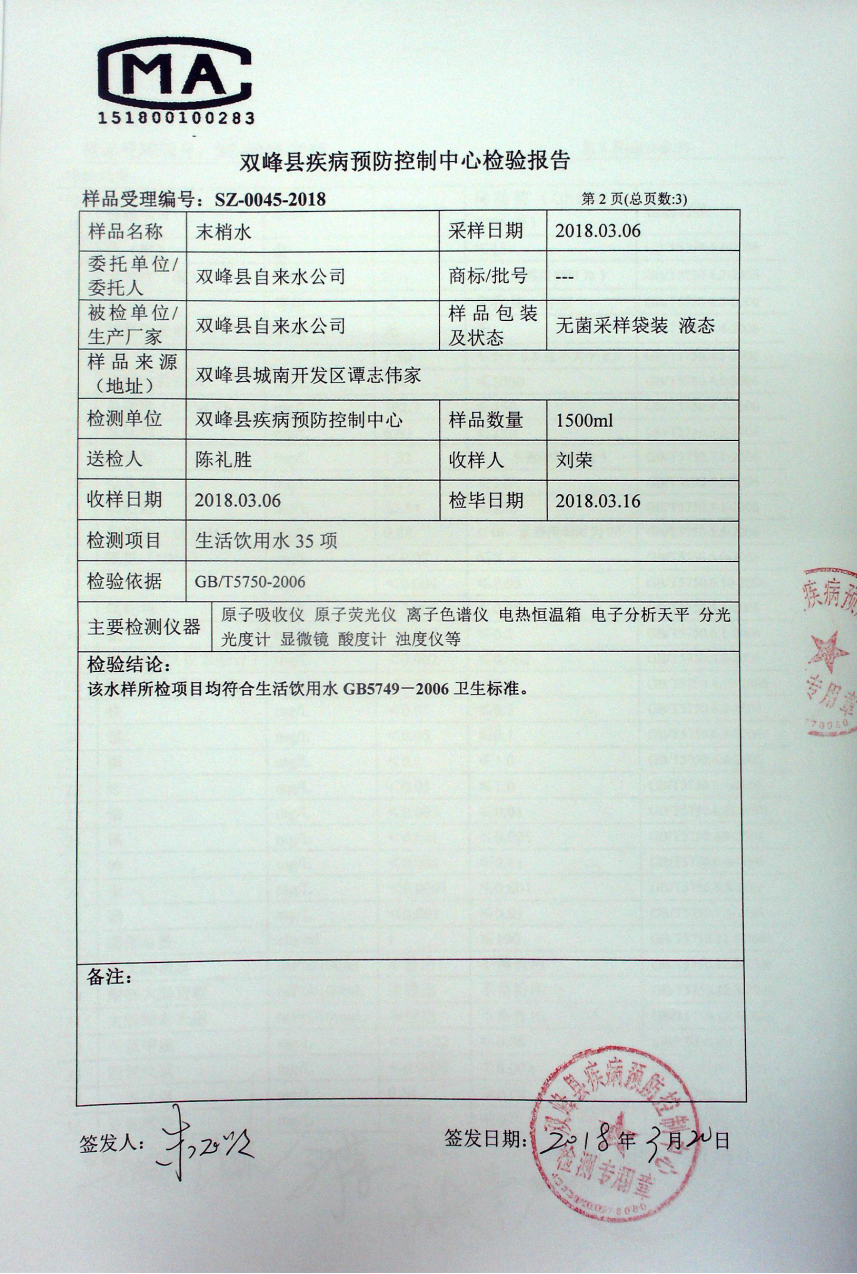 CMA
151800100283
双峰县疾病预防控制中心检验报告
样品受理编号：SZ-0045-2018 第 2 页(总页数:3)
样品名称 末梢水 采样日期 2018.03.06
委托单位/
委托人 双峰县自来水公司 商标/批号 ---
被检单位/
生产厂家 双峰县自来水公司 样品包装
及状态 无菌采样袋装 液态
样品来源
（地址） 双峰县城南开发区谭志伟家
检测单位 双峰县疾病预防控制中心 样品数量 1500ml
送检人 陈礼胜 收样人 刘荣
收样日期 2018.03.06 检毕日期 2018.03.16
检测项目 生活饮用水 35 项
检验依据 GB/T5750-2006
主要检测仪器 原子吸收仪 原子荧光仪 离子色谱仪 电热恒温箱 电子分析天平 分光
光度计 显微镜 酸度计 浊度仪等
检验结论：
该水样所检项目均符合生活饮用水 GB5749－2006 卫生标准。
疾病预
专用章
备注：
双峰县疾病预防控制中心
检测专用章
签发人： 签发日期: 2018年3月20日